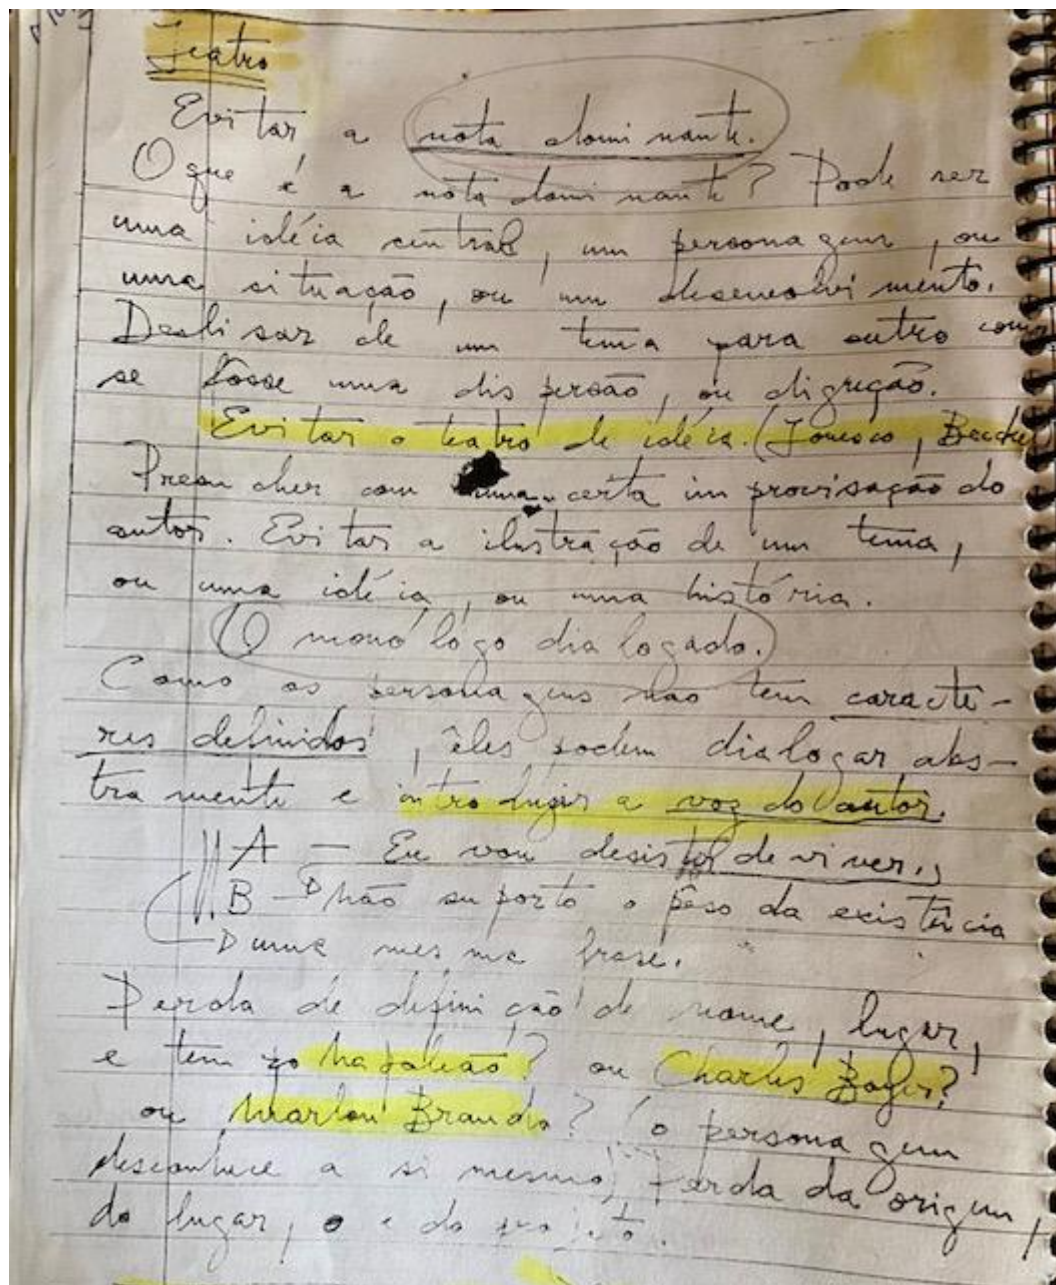 Teatro
Evitar a nota dominante.
O que é a nota dominante? Pode ser
uma idéia central, um personagem, ou
uma situação, ou um desenvolvimento.
Deslisar de um tema para outro como
se fôsse uma dispersão, ou digreção.
Evitar o teatro de idéia. (Ionesco, Becket)
Preencher com uma certa improvisação do
autor. Evitar a ilustração de um tema,
ou uma idéia, ou uma história.
O monólogo dialogado.
Como os personagens não tem caracté-
res definidos, êles podem dialogar abs-
tramente e introduzir a voz do autor.
A — Eu vou desistir de viver.
B — não suporto o pêso da existência
numa mesma frase.
Perda de definição de nome, lugar,
e tempo Napoleão? ou Charles Boyer?
ou Marlon Brando? o personagem
desconhece a si mesmo, Perda da origem,
do lugar, e do